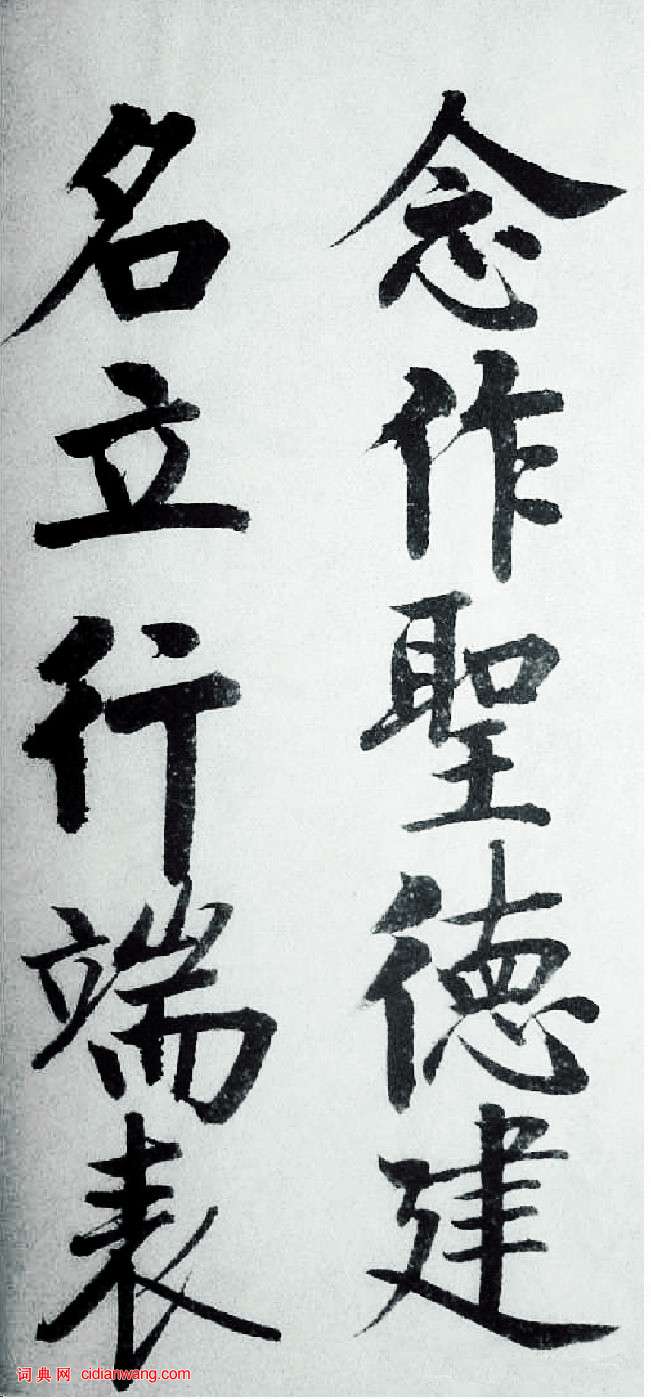 念作聖德建
名立行端表
词典网 cidianwang.com